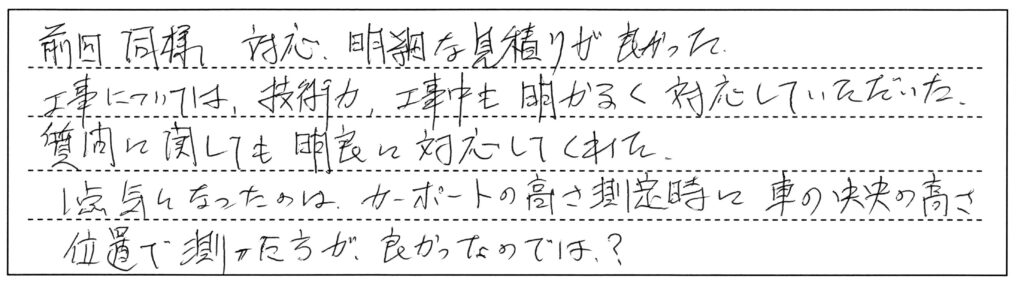 前回同様、対応、明細な見積りが良かった。
工事については、技術力、工事中も明かるく対応していただいた。
質問に関しても明良に対応してくれた。
1点気になったのは、カーポートの高さ測定時に車の中央の高さ
位置で測った方が、良かったのでは、?